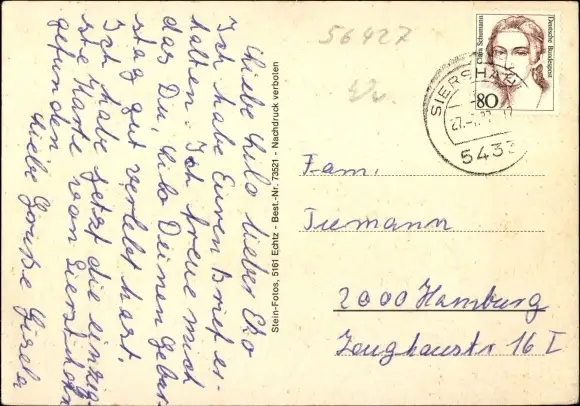 Liebe Lilo lieber Otto
Ich habe Euren Brief er-
halten. Ich freue mich
das Du Lilo Deinen Gebur-
stag gut verlebt hast.
Ich habe jetzt die einzig-
ste Karte von Siershahn
gefunden
Liebe Grüße Gisela
Stein-Fotos, 5161 Echtz - Best.-Nr. 73521 - Nachdruck verboten
56427
Clara Schumann
Deutsche Bundespost
80
SIERSHAHN
5433
Fam.
Tiemann
2000 Hamburg
Zeughausstr 16 I